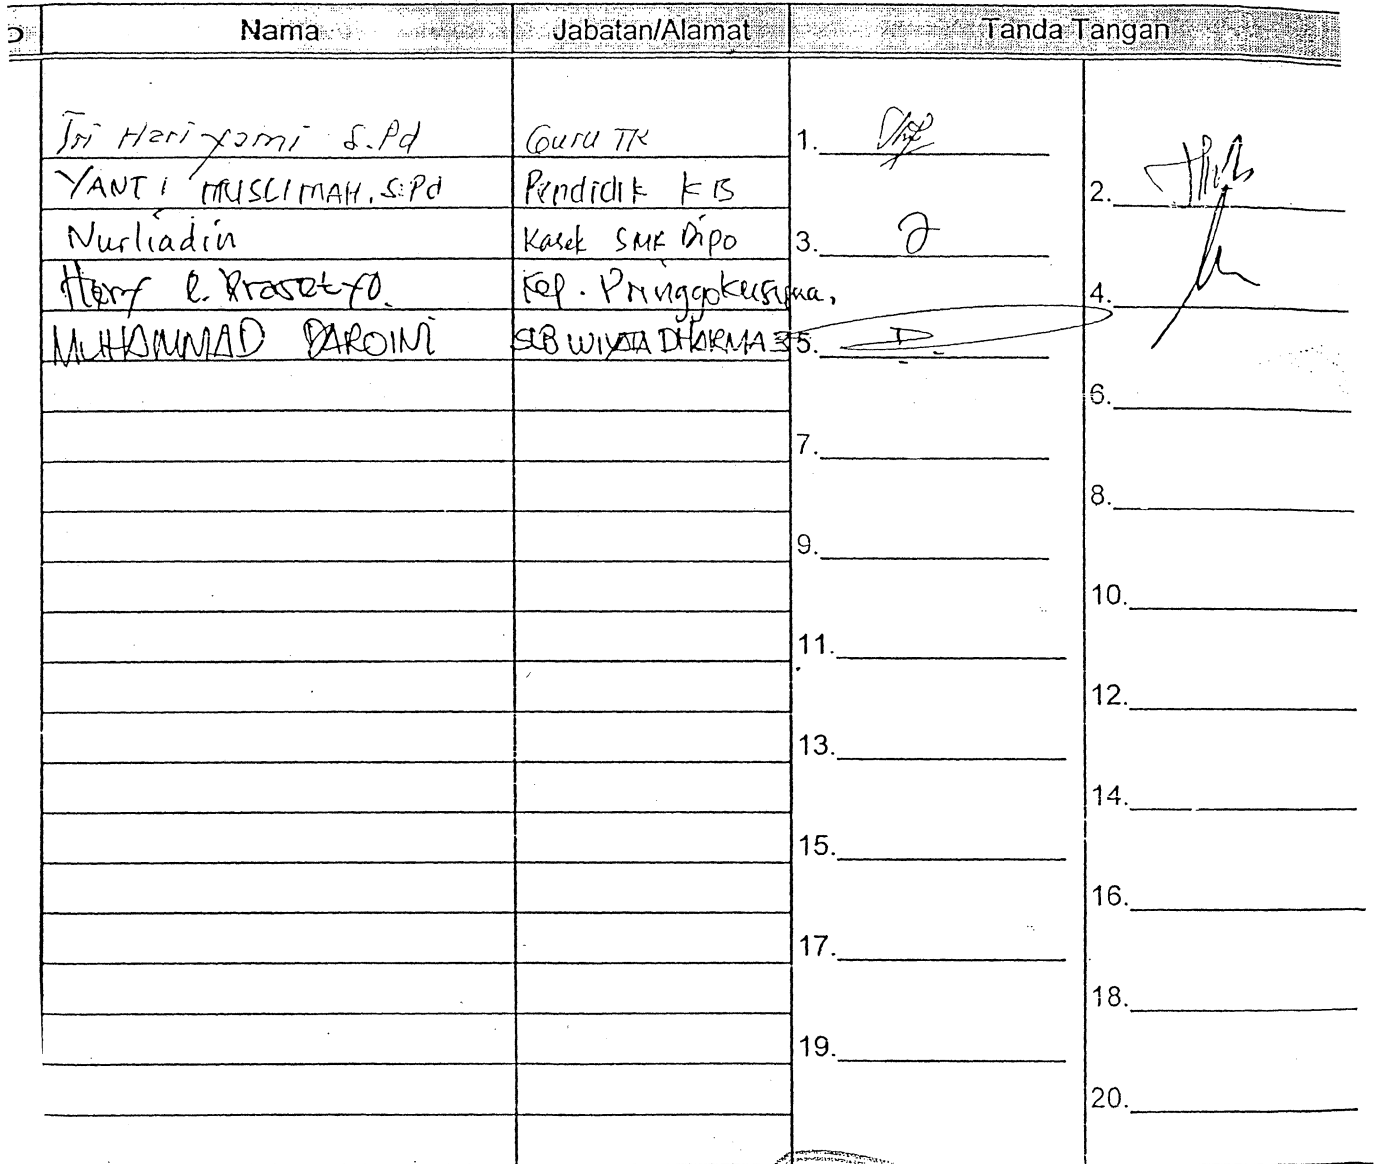 Nama Jabatan/Alamat Tanda Tangan
Tri Hariyami S.Pd Guru TK 1.
YANTI MUSLIMAH, S.Pd Pendidik KB 2.
Nurliadin Kasek SMK Dipo 3.
Hery Prasetyo. Kel. Pringgokusuma, 4.
MUHAMMAD DAROINI SLB WIYATA DHARMA 3 5.
6.
7.
8.
9.
10.
11.
12.
13.
14.
15.
16.
17.
18.
19.
20.